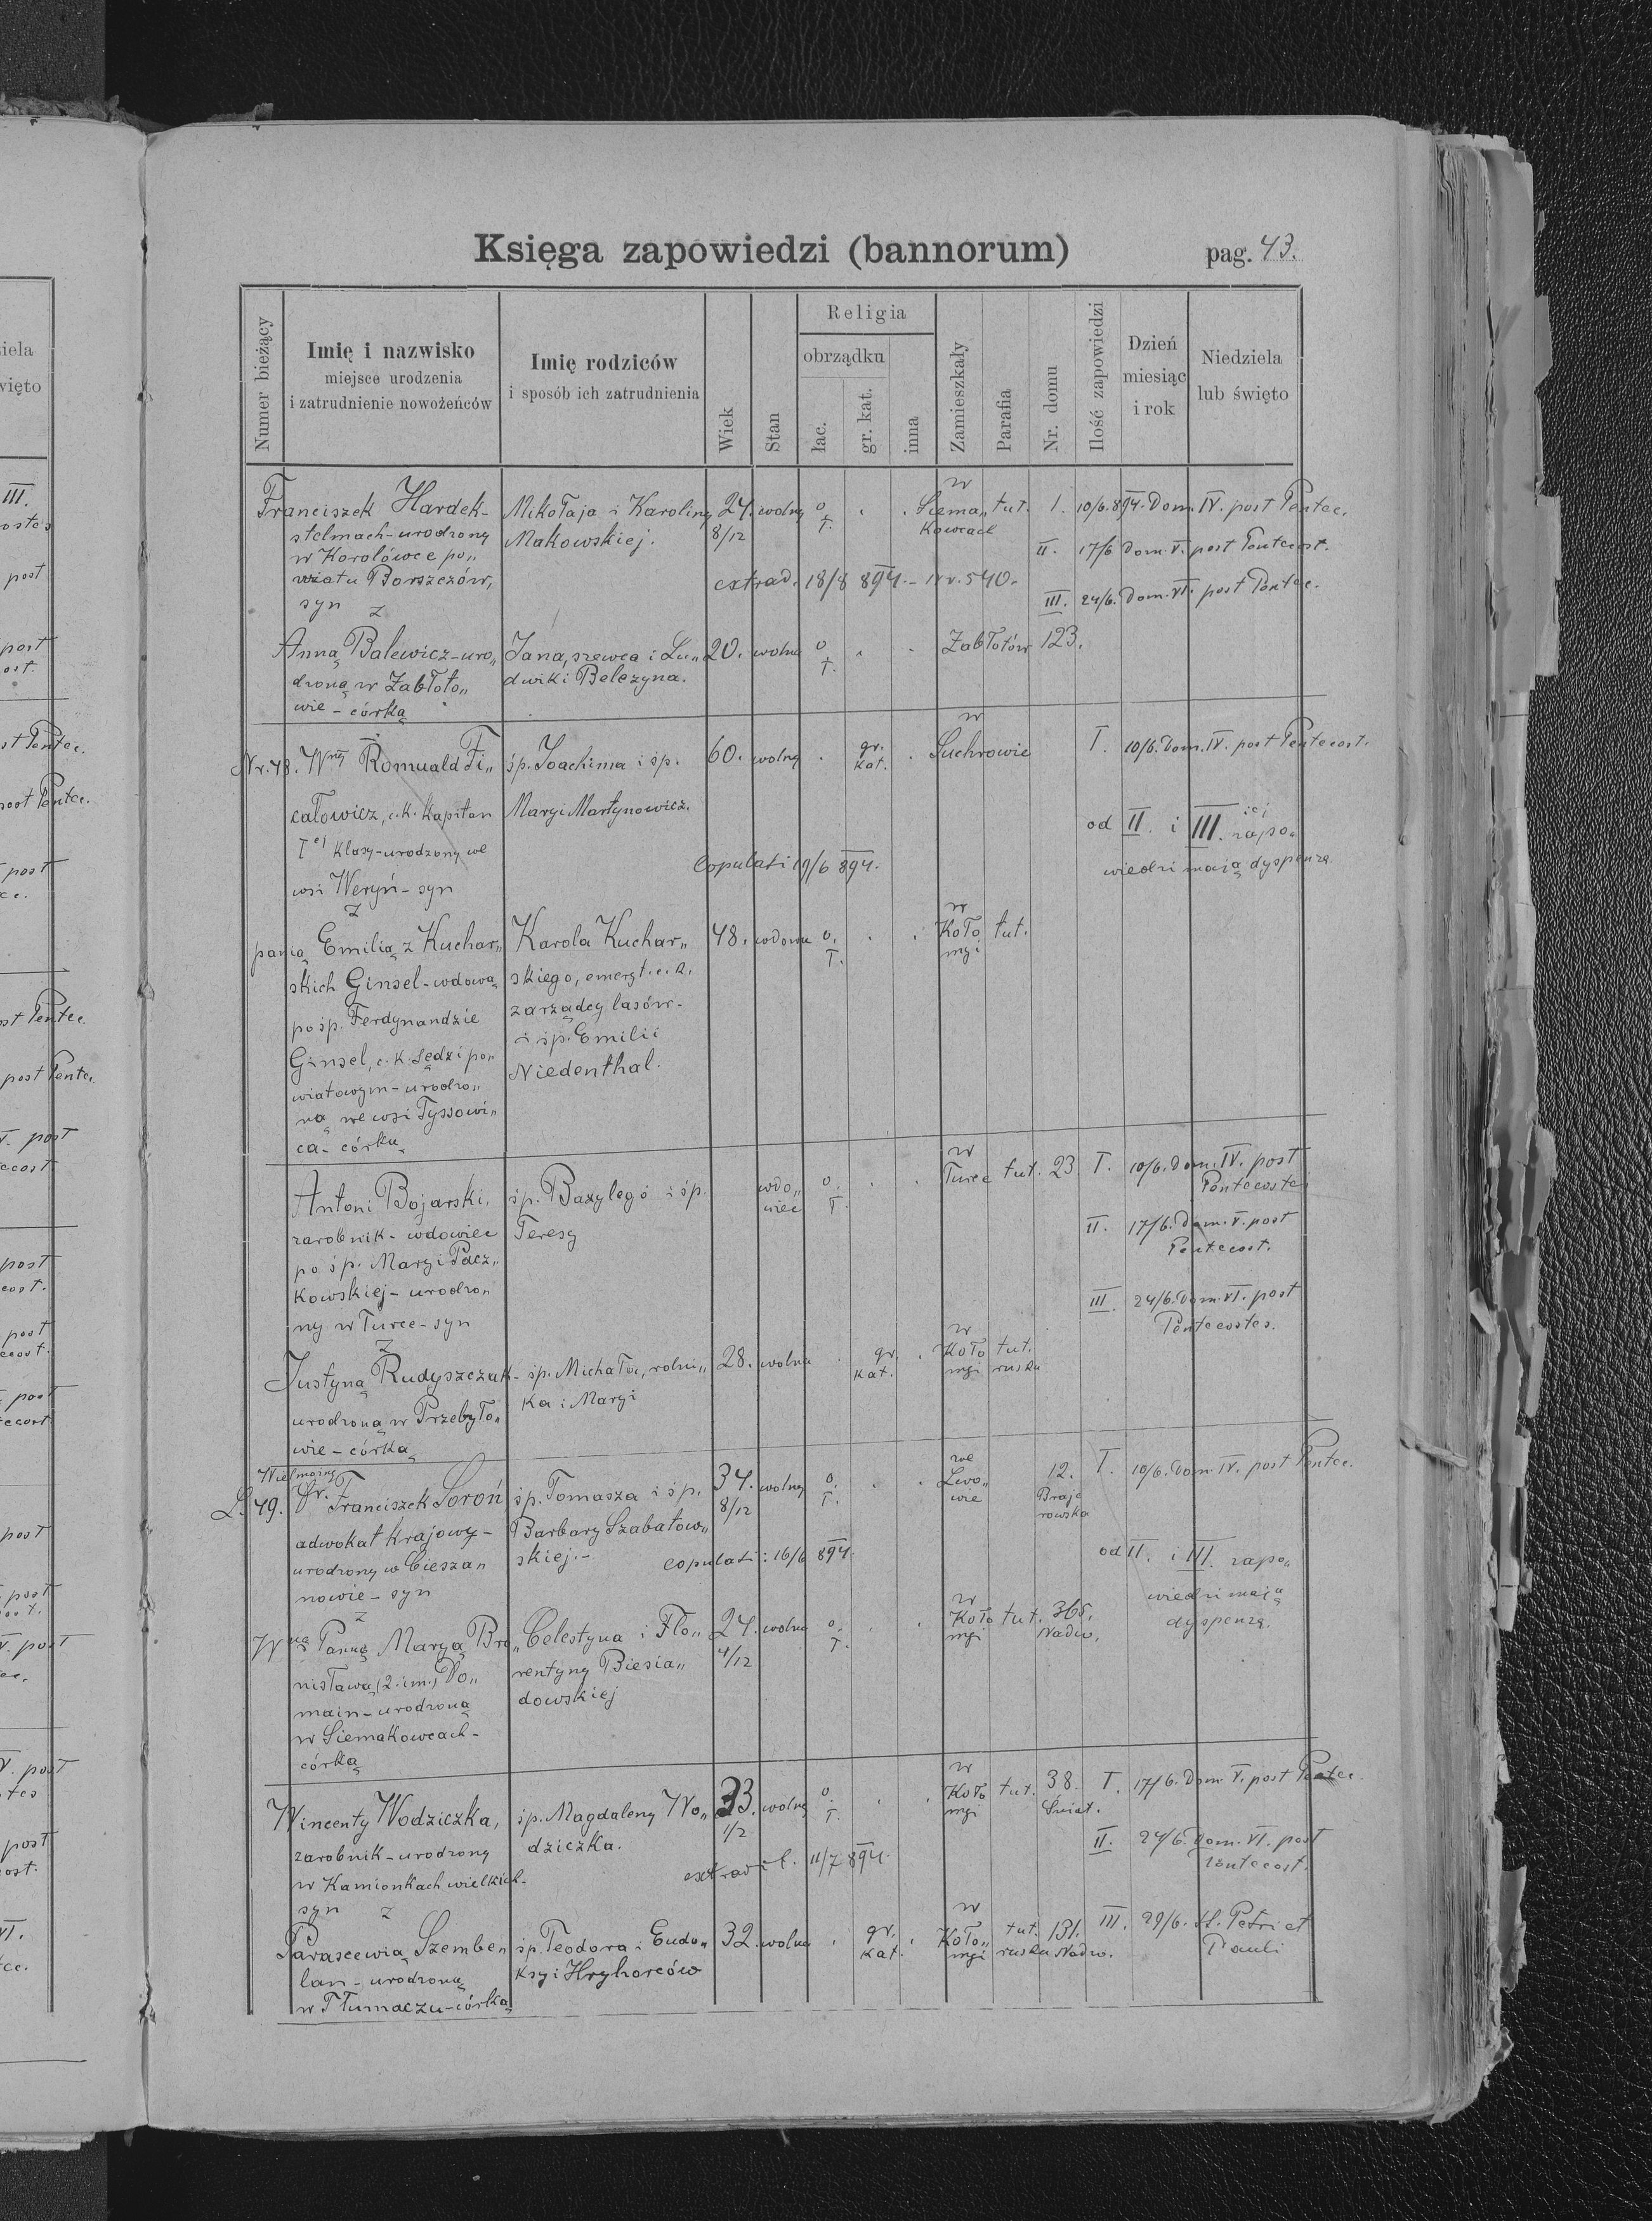 Księga zapowiedzi (bannorum) pag. 43.
Numer bieżący
Imię i nazwisko
miejsce urodzenia
i zatrudnienie nowożeńców
Imię rodziców
i sposób ich zatrudnienia
Wiek
Stan
Religia
obrządku
łac.
gr. kat.
inna
Zamieszkały
Parafia
Nr. domu
Ilość zapowiedzi
Dzień
miesiąc
i rok
Niedziela
lub święto
Franciszek Hardek-
stelmach-urodzony
w Korolówce po„
wiatu Borszczów,
syn
z
Mikołaja i Karoliny
Makowskiej.
24. wolny o. ł. . .
8/12
w
Siema„ tut.
kowcach
I. 10/6. 894. Dom. IV. post Pentec.
II. 17/6 Dom. V. post Pentecost.
III. 24/6. Dom. VI. post Pentec.
extrad. 18/8 894. - Nr. 540.
Anną Balewicz-uro„
dzoną w Zabłoto„
wie - córką
Jana, szewca i Lu„
dwiki Belczyna.
20. wolna o. ł. . .
Zabłotów 123.
Nr. 48. Wny Romuald Fi„
całowicz, c. k. Kapitan
I ej klasy-urodzony we
wsi Weryń - syn
z
śp. Joachima i śp.
Maryi Martynowicz.
60. wolny . gr. kat. .
w
Suchrowie
I. 10/6. Dom. IV. post Pentecost.
od II. i III. iej zapo„
wiedzi mają dyspenzę
Copulati 19/6 894.
panią Emilią z Kuchar„
skich Ginsel-wdową
po śp. Ferdynandzie
Ginsel, c. k. Sędzi po„
wiatowym-urodzo„
ną we wsi Tyssowi„
ca - córką
Karola Kuchar„
skiego, emeryt. c. k.
zarządcy lasów-
i śp. Emilii
Niedenthal.
48. wdowa o. ł. . .
w
Koło tut.
myi
Antoni Bojarski,
zarobnik - wdowiec
po śp. Maryi Pacz„
kowskiej - urodzo„
ny w Turce - syn
z
śp. Bazylego i śp.
Teresy
wdo„
wiec
o. ł. . .
w
Turce tut. 23
I. 10/6. Dom. IV. post
Pentecostes
II. 17/6. Dom. V. post
Pentecost.
III. 24/6. Dom. VI. post
Pentecostes.
Justyną Rudyszczak-
urodzoną w Przebyło„
wie - córką
śp. Michała, rolni„
ka i Maryi
28. wolna . gr. kat. .
w
Koło tut.
myi ruska
L. 49. Wielmożny
Dr. Franciszek Soroń
adwokat krajowy-
urodzony w Cieszan
nowie - syn
z
śp. Tomasza i śp.
Barbary Szabatow„
skiej.-
34. wolny o. ł. . .
8/12
we
Lwo„
wie
12.
Braje
rowska
I. 10/6. Dom. IV. post Pentec.
od II. i III. zapo„
wiedzi mają
dyspenzę.
copulati: 16/6 894.
Wną Pannę Maryą Bro„
nisławą (2. im.) Do„
main - urodzoną
w Siemakowcach-
córką
Celestyna i Flo„
rentyny Biesia„
dowskiej
24. wolna o. ł. . .
4/12
w
Koło tut. 365.
myi Nadw.
Wincenty Wodziczka,
zarobnik - urodzony
w Kamionkach wielkich-
syn z
śp. Magdaleny Wo„
dziczka.
33. wolny o. ł. . .
1/2
w
Koło tut. 38.
myi Świat.
I. 17/6. Dom. V. post Pentec.
II. 24/6. Dom. VI. post
Pentecost.
III. 29/6. SS. Petri et
Pauli
extradit. 11/7 894.
Parascewią Szembe„
lan - urodzoną
w Tłumaczu-córką
śp. Teodora i Eudo„
ksyi Hryhorców
32. wolna . gr. kat. .
w
Koło„ tut. 131.
myi ruska Nadw.